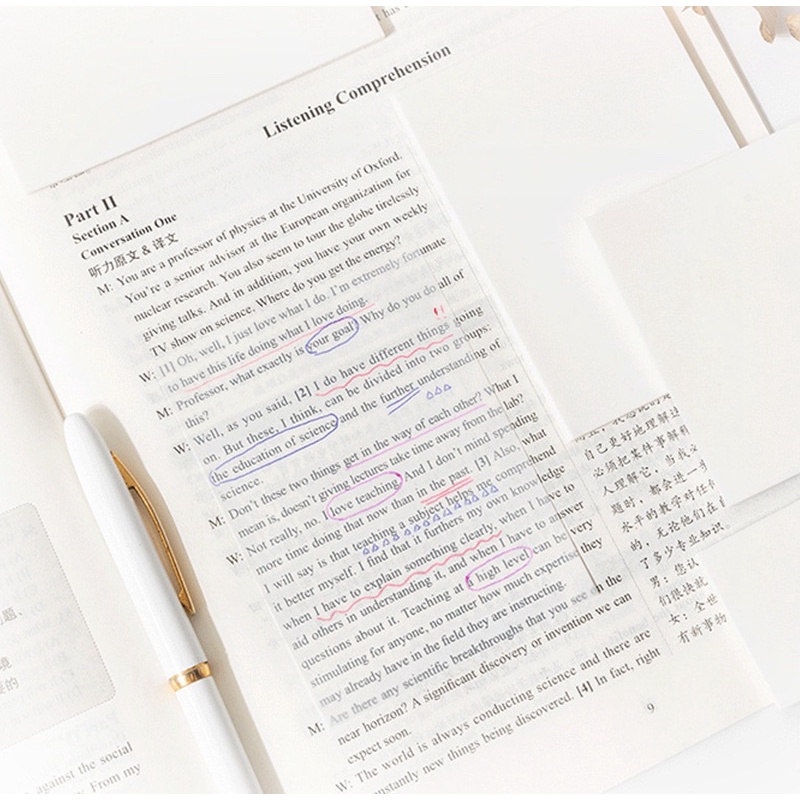 Listening Comprehension
Part II
Section A
Conversation One
听力原文 & 译文
M: You are a professor of physics at the University of Oxford.
You're a senior advisor at the European organization for
nuclear research. You also seem to tour the globe tirelessly
giving talks. And in addition, you have your own weekly
TV show on science. Where do you get the energy?
W: [1] Oh, well, I just love what I do. I'm extremely fortunate
to have this life doing what I love doing.
M: Professor, what exactly is your goal? Why do you do all of
this?
W: Well, as you said, [2] I do have different things going
on. But these, I think, can be divided into two groups:
the education of science and the further understanding of
science.
M: Don't these two things get in the way of each other? What I
mean is, doesn't giving lectures take time away from the lab?
W: Not really, no. I love teaching. And I don't mind spending
more time doing that now than in the past. [3] Also, what
I will say is that teaching a subject helps me comprehend
it better myself. I find that it furthers my own knowledge
when I have to explain something clearly, when I have to
aid others in understanding it, and when I have to answer
questions about it. Teaching at a high level can be very
stimulating for anyone, no matter how much expertise they
may already have in the field they are instructing.
M: Are there any scientific breakthroughs that you see on the
near horizon? A significant discovery or invention we can
expect soon.
W: The world is always conducting science and there are
constantly new things being discovered. [4] In fact, right
9
自己更好地理解
必须把某件事解释
人理解它，当我
题时，都会进一
水平的教学对任
的，无论他们在
了多少专业知识。
男：您认
们很快就
女：全世
有新事物
题、
境
要的
against the social
y. From my